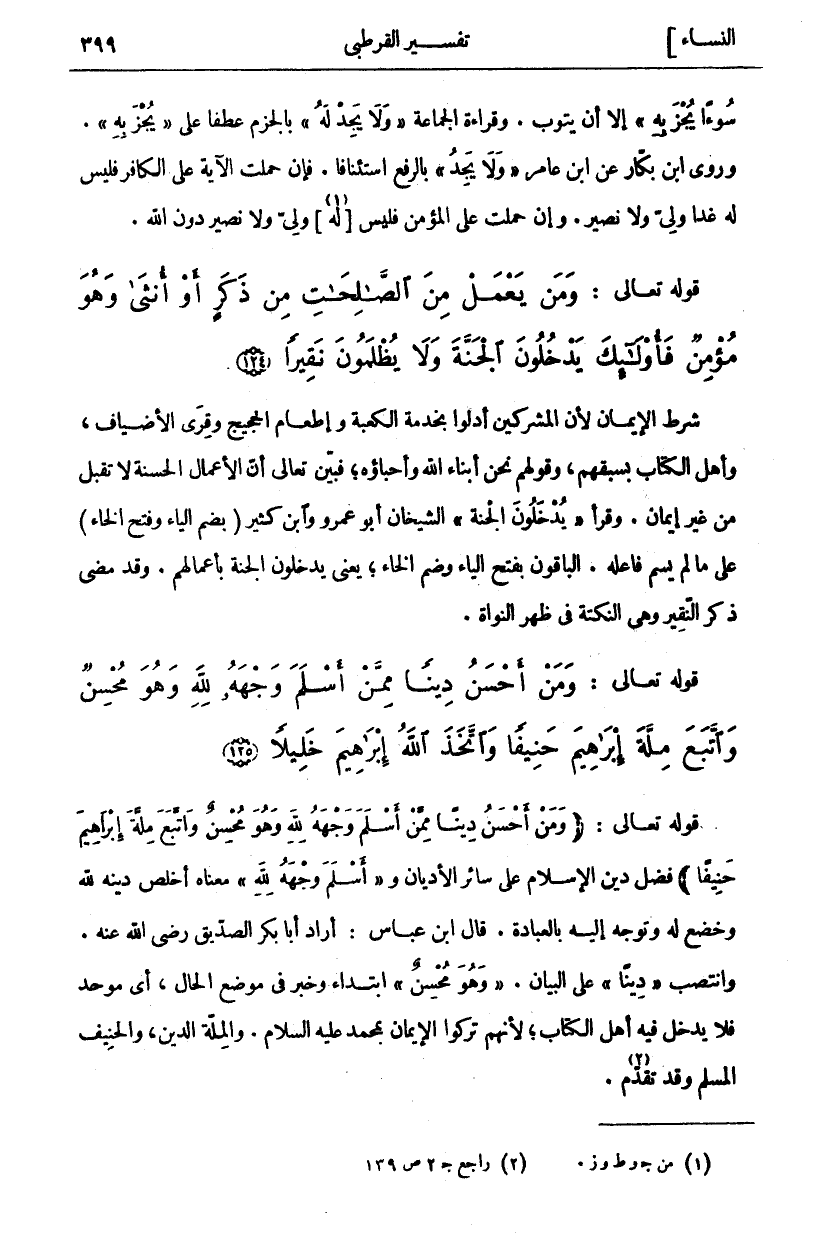 النساء ] تفسير القرطبى ٣٩٩
سُوءًا يُجْزَ بِهِ » إلا أن يتوب . وقراءة الجماعة « وَلَا يَجِدْ لَهُ » بالجزم عطفا على « يُجْزَ بِهِ » .
وروى ابن بكّار عن ابن عامر « وَلَا يَجِدُ » بالرفع استئنافا . فإن حملت الآية على الكافر فليس
له غدا ولىّ ولا نصير . وإن حملت على المؤمن فليس [ لَهُ ](١) ولىّ ولا نصير دون الله .
قوله تعالى : وَمَن يَعْمَلْ مِنَ ٱلصَّٰلِحَٰتِ مِن ذَكَرٍ أَوْ أُنثَىٰ وَهُوَ
مُؤْمِنٌ فَأُو۟لَٰٓئِكَ يَدْخُلُونَ ٱلْجَنَّةَ وَلَا يُظْلَمُونَ نَقِيرًا ﴿١٢٤﴾
شرط الإيمان لأن المشركين أدلوا بخدمة الكعبة وإطعام الحجيج وقِرَى الأضياف ،
وأهل الكتاب بسبقهم ، وقولهم نحن أبناء الله وأحباؤه ؛ فبيّن تعالى أنّ الأعمال الحسنة لا تقبل
من غير إيمان . وقرأ « يُدْخَلُونَ الْجنة » الشيخان أبو عمرو وآبن كثير ( بضم الياء وفتح الخاء )
على ما لم يسم فاعله . الباقون بفتح الياء وضم الخاء ؛ يعنى يدخلون الجنة بأعمالهم . وقد مضى
ذكر النَّقِير وهى النكتة فى ظهر النواة .
قوله تعالى : وَمَنْ أَحْسَنُ دِينًا مِمَّنْ أَسْلَمَ وَجْهَهُۥ لِلَّهِ وَهُوَ مُحْسِنٌ
وَٱتَّبَعَ مِلَّةَ إِبْرَٰهِيمَ حَنِيفًا وَٱتَّخَذَ ٱللَّهُ إِبْرَٰهِيمَ خَلِيلًا ﴿١٢٥﴾
قوله تعالى : ﴿ وَمَنْ أَحْسَنُ دِينًا مِمَّنْ أَسْلَمَ وَجْهَهُ لِلَّهِ وَهُوَ مُحْسِنٌ وَاتَّبَعَ مِلَّةَ إِبْرَاهِيمَ
حَنِيفًا ﴾ فضل دين الإسلام على سائر الأديان و « أَسْلَمَ وَجْهَهُ لِلَّهِ » معناه أخلص دينه لله
وخضع له وتوجه إليه بالعبادة . قال ابن عباس : أراد أبا بكر الصدّيق رضى الله عنه .
وانتصب « دِينًا » على البيان . « وَهُوَ مُحْسِنٌ » ابتداء وخبر فى موضع الحال ، أى موحد
فلا يدخل فيه أهل الكتاب ؛ لأنهم تركوا الإيمان بمحمد عليه السلام . والمِلّة الدين ، والحنِيف
المسلم وقد تقدّم(٢) .
(١) من جـ و ط و ز . (٢) راجع جـ ٢ ص ١٣٩